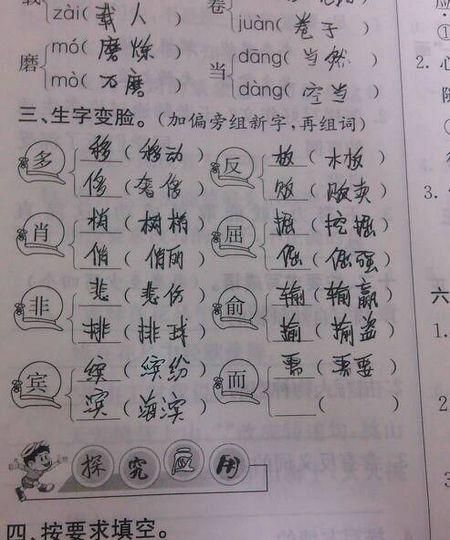 载 zài(载人) 卷
juàn(卷子)
磨 mó(磨炼) 当 dāng(当然)
mò(石磨) dàng(空当)
三、生字变脸。(加偏旁组新字,再组词)
多 移(移动) 反 板(木板)
侈(奢侈) 贩(贩卖)
肖 梢(树梢) 屈 掘(挖掘)
俏(俏丽) 倔(倔强)
非 悲(悲伤) 俞 输(输赢)
排(排球) 揄(揄盗)
宾 缤(缤纷) 而 需(需要)
滨(海滨) ( )
探究应用
四、按要求填空。
①
2.
3.
六
1.
2
3